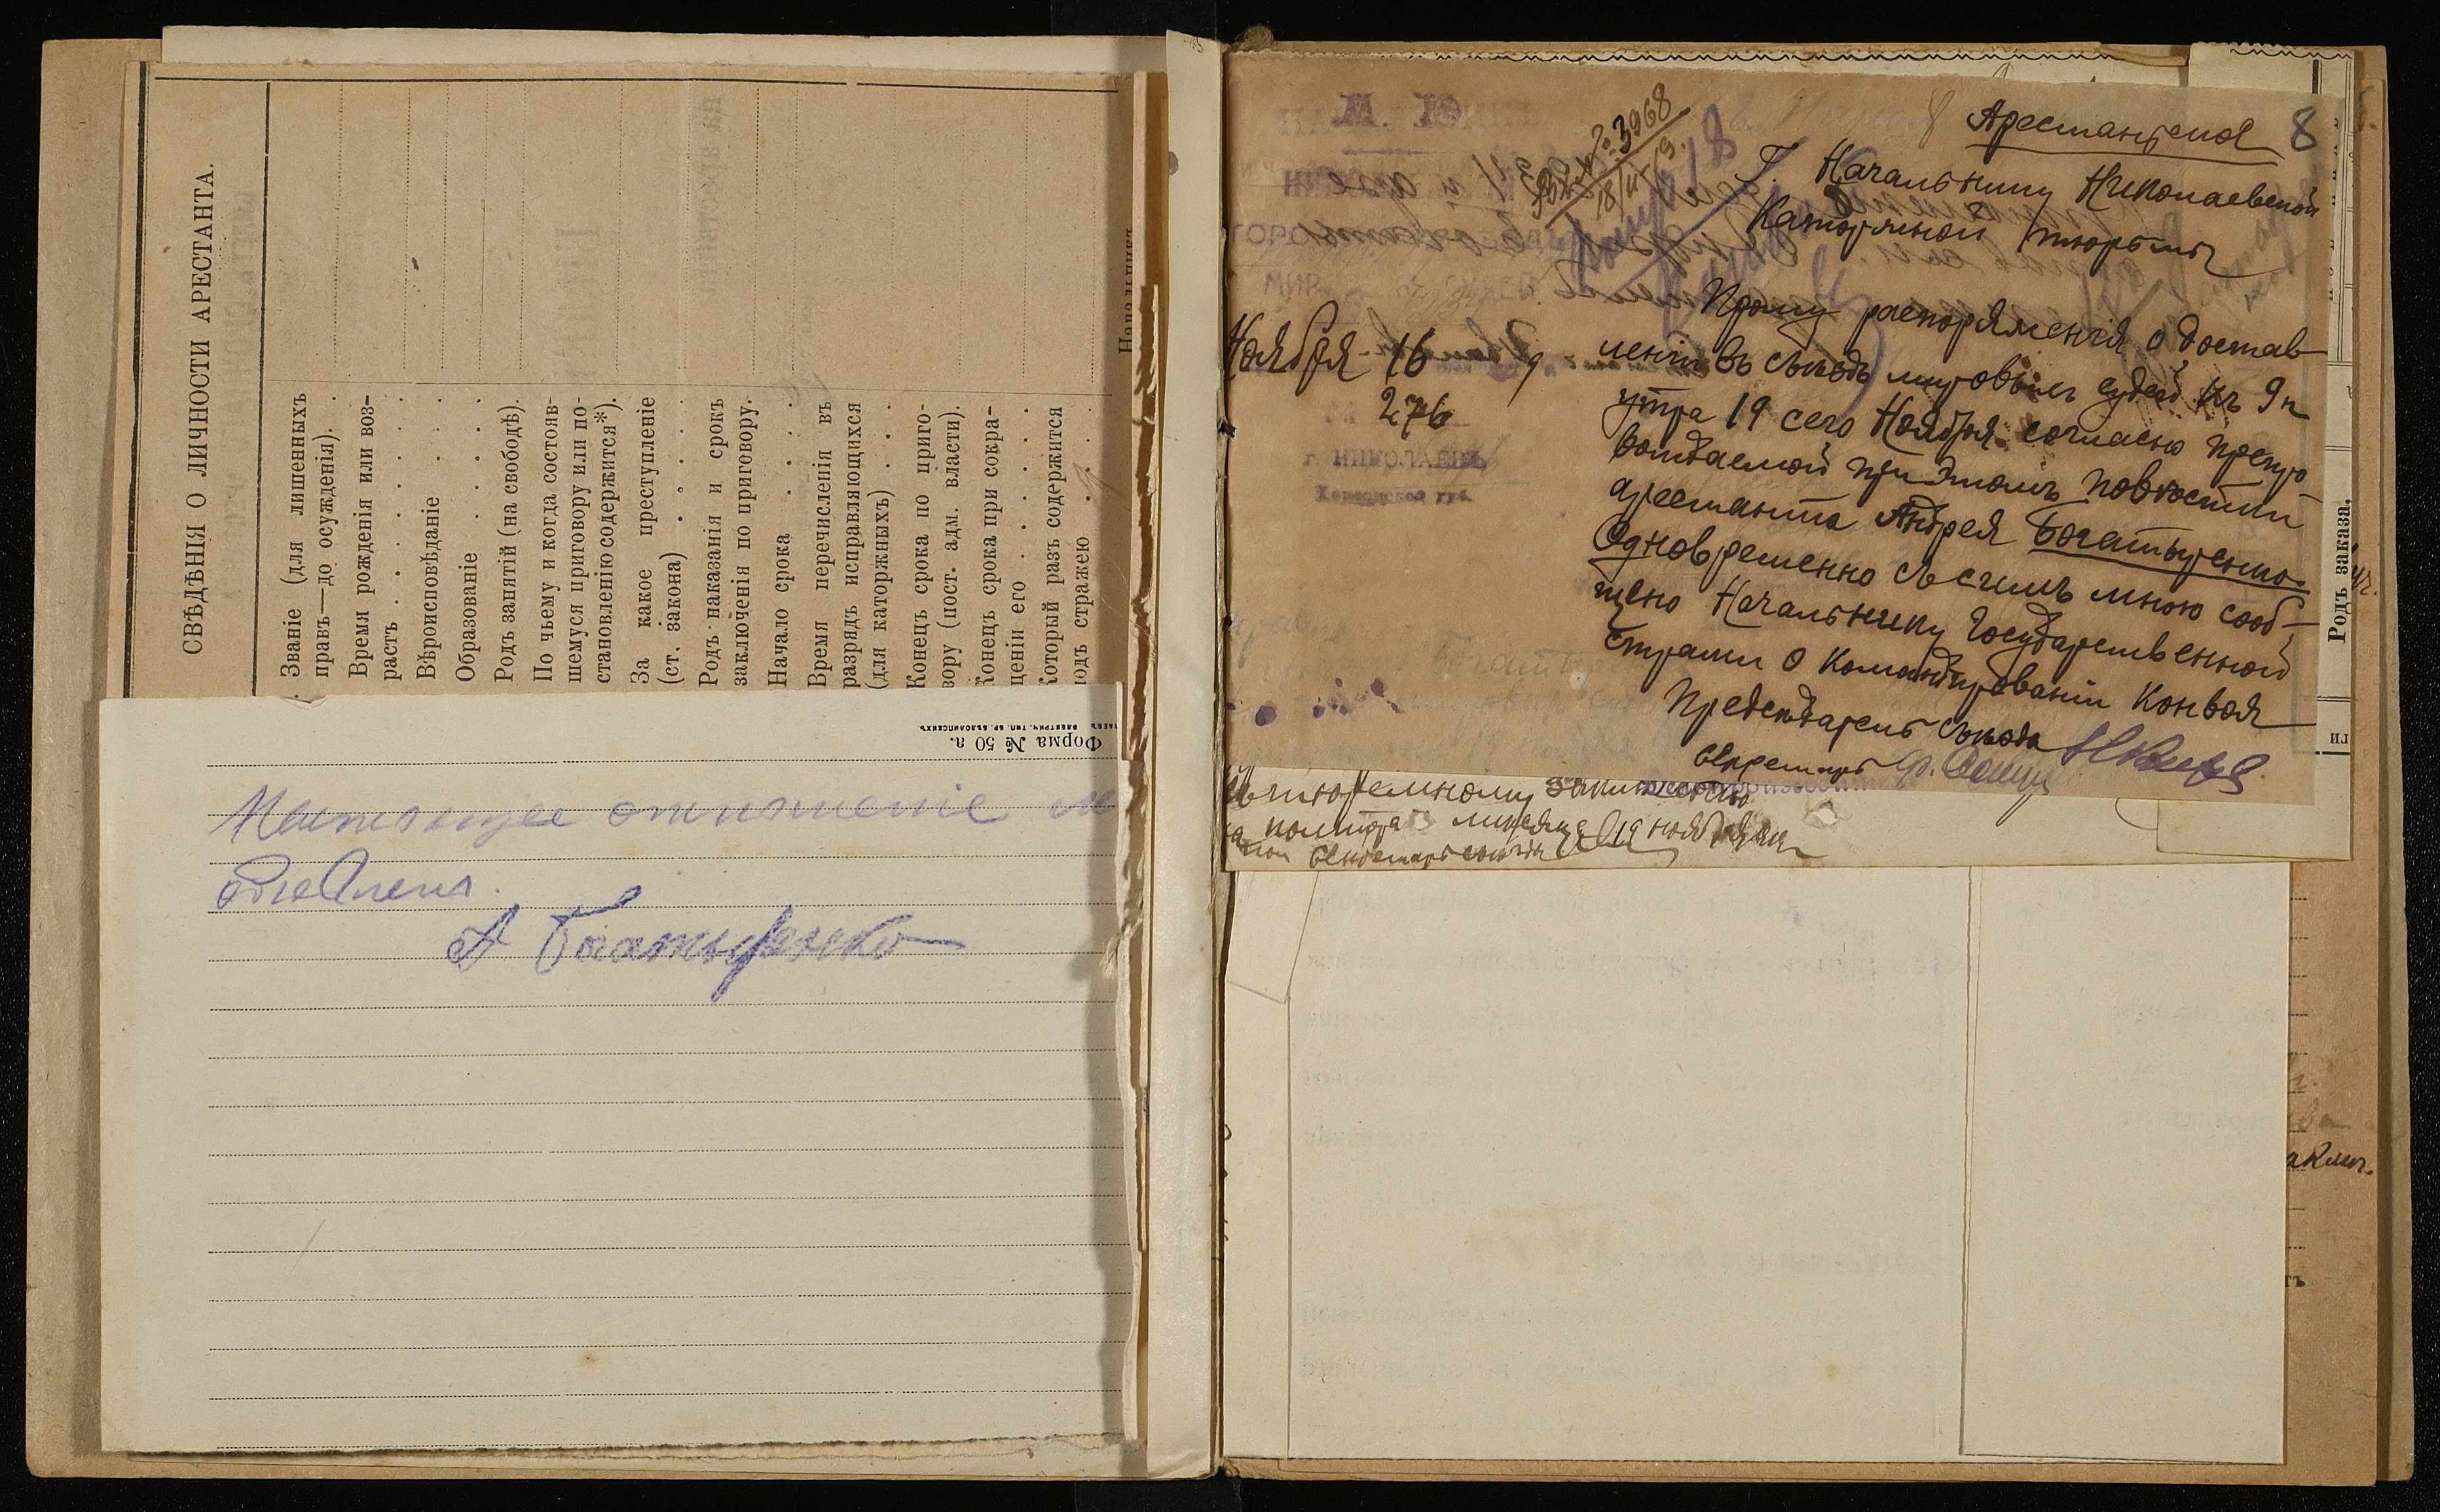 СВѢДѢНІЯ О ЛИЧНОСТИ АРЕСТАНТА.
Званіе (для лишенныхъ
правъ—до осужденія). .
Время рожденія или воз-
растъ . . . . . .
Вѣроисповѣданіе . . .
Образованіе . . . . .
Родъ занятій (на свободѣ).
По чьему и когда состояв-
шемуся приговору или по-
становленію содержится*).
За какое преступленіе
(ст. закона) . . . .
Родъ наказанія и срокъ
заключенія по приговору.
Начало срока . . . .
Время перечисленія въ
разрядъ исправляющихся
(для каторжныхъ) . . .
Конецъ срока по приго-
вору (пост. адм. власти).
Конецъ срока при сокра-
щеніи его . . . . .
Который разъ содержится
подъ стражею . . . .
Начальникъ
Форма № 50 а.
Настоящее отношеніе мнѣ
объявлено.
А Богатыренко
М. Ю.
3968
18/XI 19
Арестантская
8
Г. Начальнику Николаевской
Каторжной тюрьмы
Ноября 16 9
276
г. НИКОЛАЕВЪ
Херсонской губ.
Прошу распоряженія о достав
леніи въ съѣздъ мировыхъ судей къ 9 ч
утра 19 сего Ноября согласно препро
вождаемой при этомъ повѣстки
арестанта Андрея Богатыренко.
Одновременно съ симъ мною сооб-
щено Начальнику Государственной
Стражи о командированіи конвоя
Предсѣдатель Съѣзда
Секретарь
тюремному заключенію
на полтора мѣсяца 19 ноября
Родъ заказа.